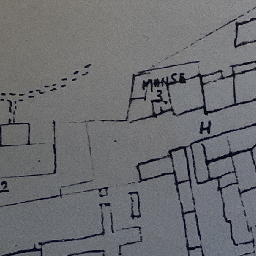 MANSE
3
H
2